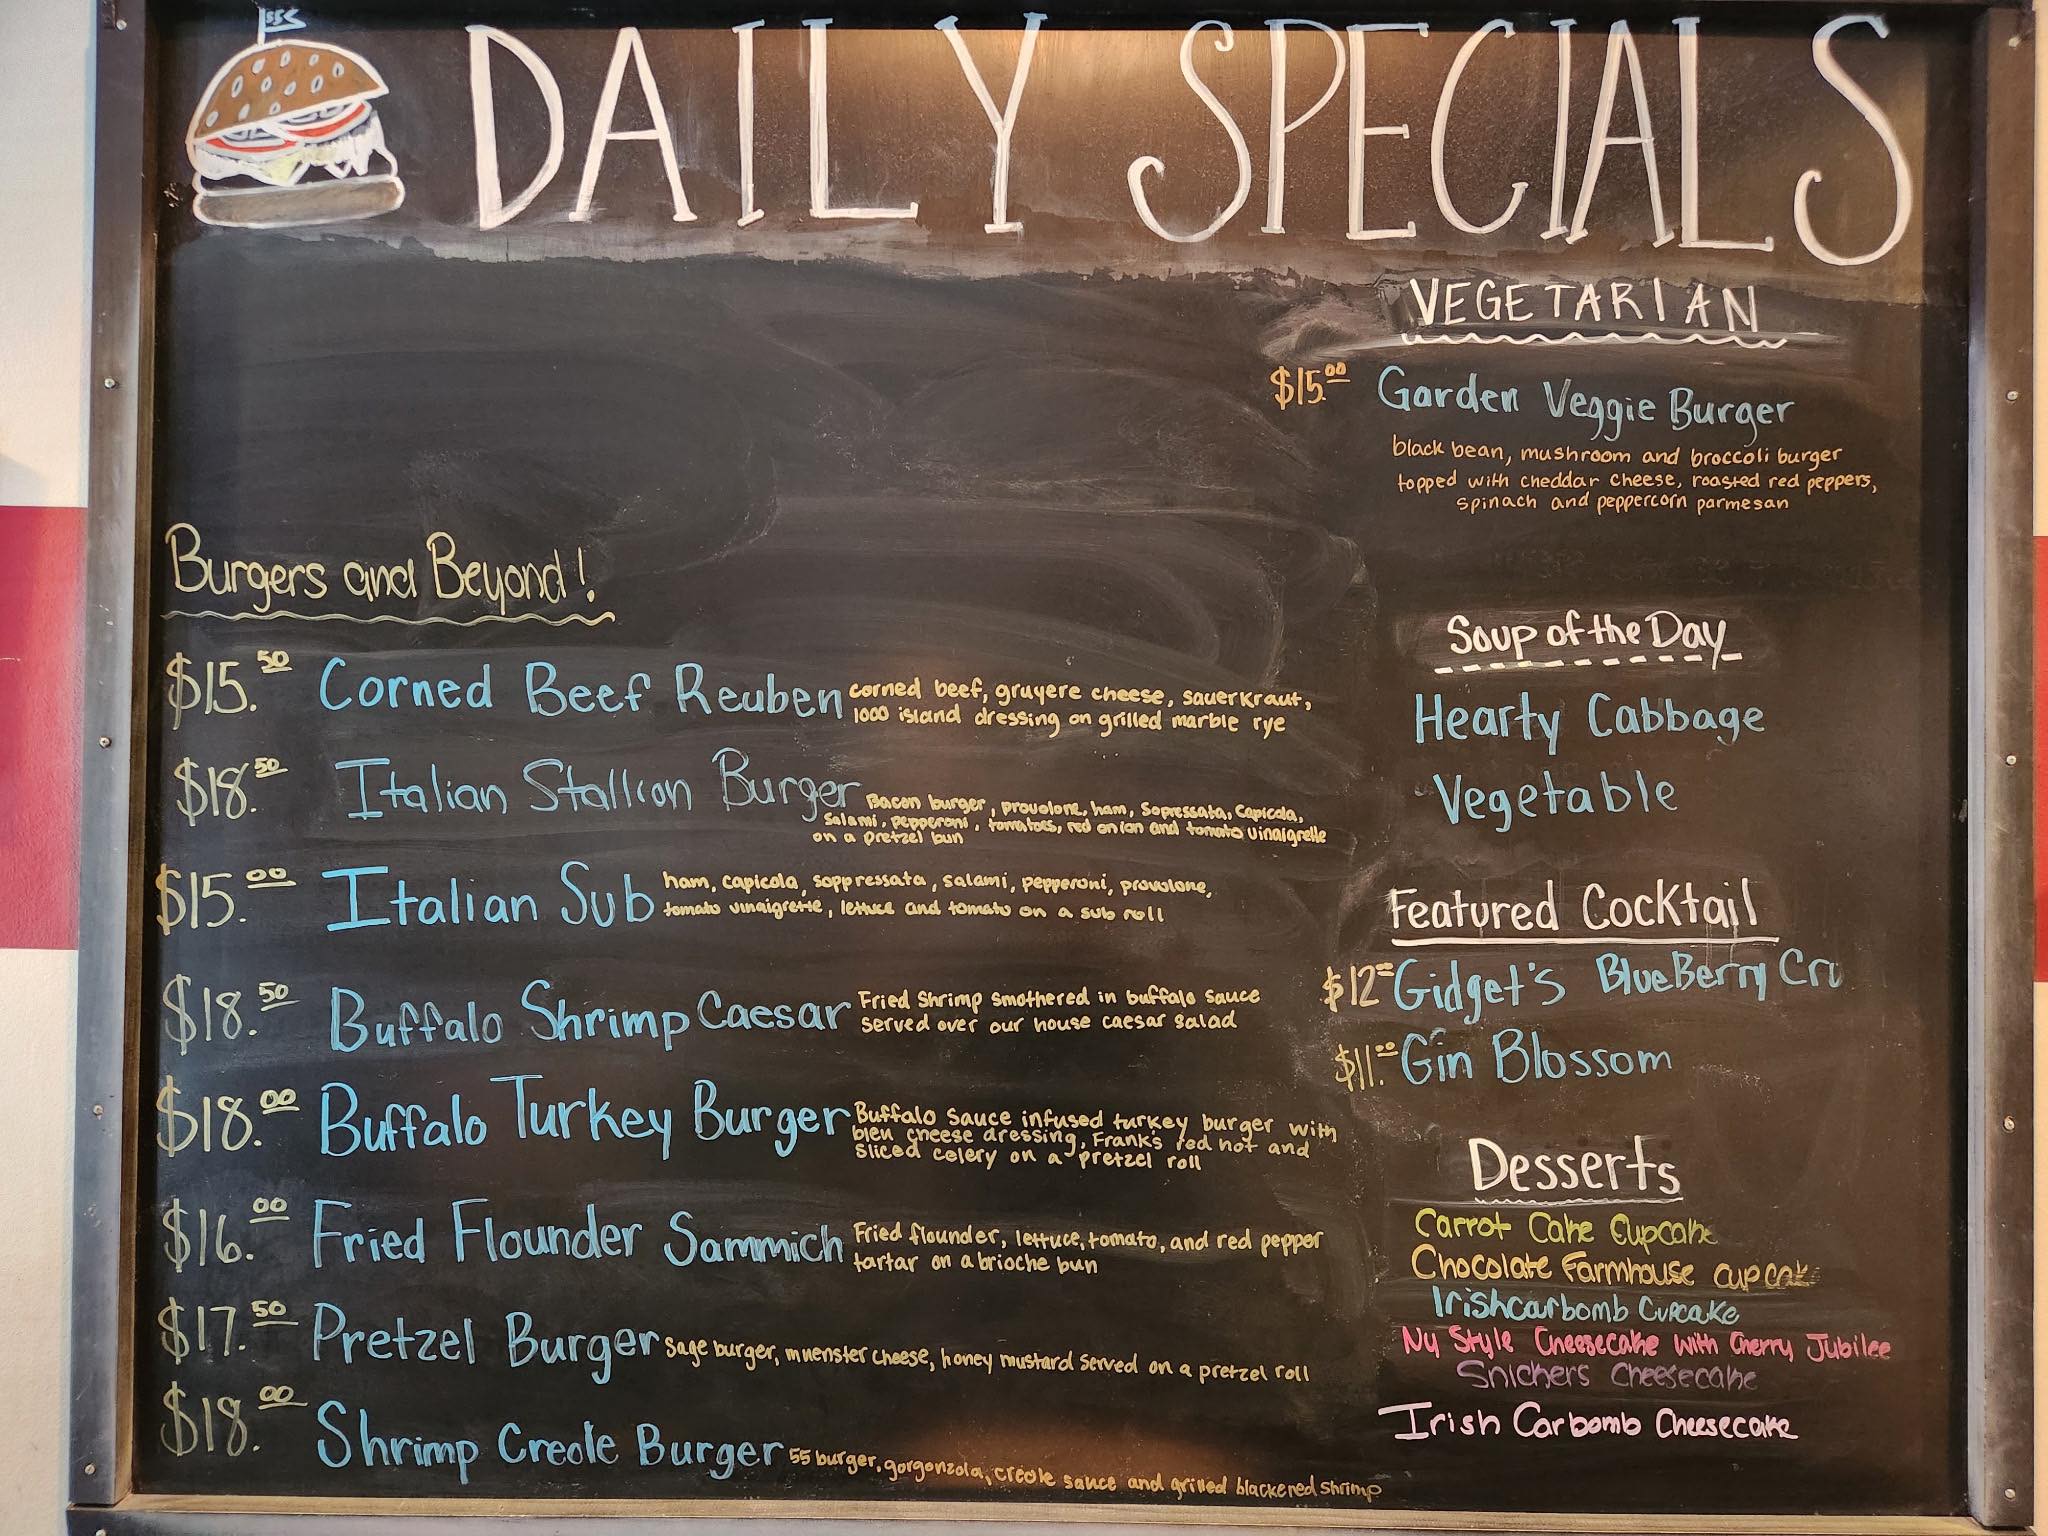 55
DAILY SPECIALS
VEGETARIAN
$15.00 Garden Veggie Burger
black bean, mushroom and broccoli burger
topped with cheddar cheese, roasted red peppers,
spinach and peppercorn parmesan
Burgers and Beyond!
$15.50 Corned Beef Reuben corned beef, gruyere cheese, sauerkraut,
1000 island dressing on grilled marble rye
$18.50 Italian Stallion Burger Bacon burger, provolone, ham, Sopressata, Capicola,
Salami, pepperoni, tomatoes, red onion and tomato vinaigrette
on a pretzel bun
$15.00 Italian Sub ham, capicola, soppressata, salami, pepperoni, provolone,
tomato vinaigrette, lettuce and tomato on a sub roll
$18.50 Buffalo Shrimp Caesar Fried Shrimp smothered in buffalo sauce
served over our house caesar salad
$18.00 Buffalo Turkey Burger Buffalo sauce infused turkey burger with
bleu cheese dressing, Frank's red hot and
sliced celery on a pretzel roll
$16.00 Fried Flounder Sammich Fried flounder, lettuce, tomato, and red pepper
tartar on a brioche bun
$17.50 Pretzel Burger Sage burger, muenster cheese, honey mustard served on a pretzel roll
$18.00 Shrimp Creole Burger 55 burger, gorgonzola, creole sauce and grilled blackened shrimp
Soup of the Day
Hearty Cabbage
Vegetable
Featured Cocktail
$12.00 Gidget's BlueBerry Cru
$11.00 Gin Blossom
Desserts
Carrot Cake Cupcake
Chocolate Farmhouse cupcake
Irishcarbomb Cupcake
Ny Style Cheesecake with Cherry Jubilee
Snickers Cheesecake
Irish Carbomb Cheesecake